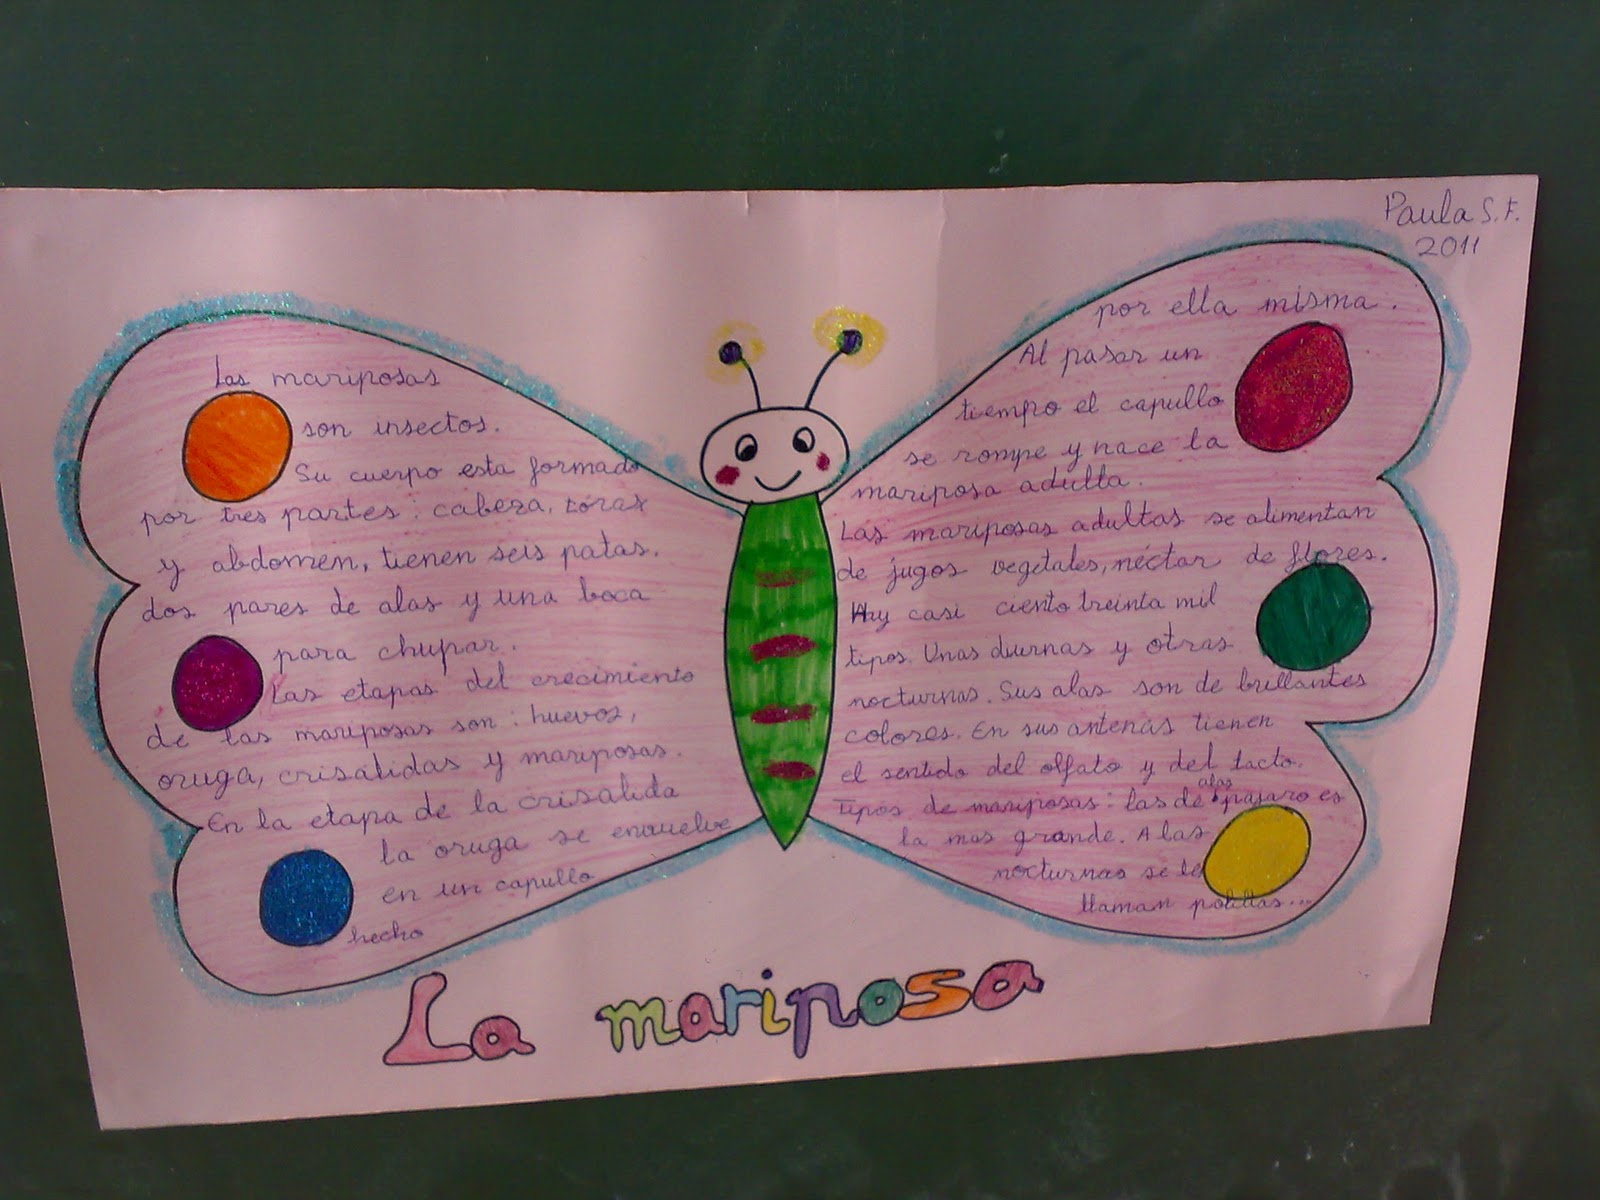 Paula S. F.
2011
Las mariposas
son insectos.
Su cuerpo esta formado
por tres partes: cabeza, tórax
y abdomen, tienen seis patas.
dos pares de alas y una boca
para chupar.
Las etapas del crecimiento
de las mariposas son: huevos,
oruga, crisalidas y mariposas.
En la etapa de la crisalida
la oruga se envuelve
en un capullo
hecho
por ella misma.
Al pasar un
tiempo el capullo
se rompe y nace la
mariposa adulta.
Las mariposas adultas se alimentan
de jugos vegetales, néctar de flores.
Hay casi ciento treinta mil
tipos. Unas diurnas y otras
nocturnas. Sus alas son de brillantes
colores. En sus antenas tienen
el sentido del olfato y del tacto.
Tipos de mariposas: las de alas pajaro es
la mas grande. A las
nocturnas se le
llaman polillas...
La mariposa